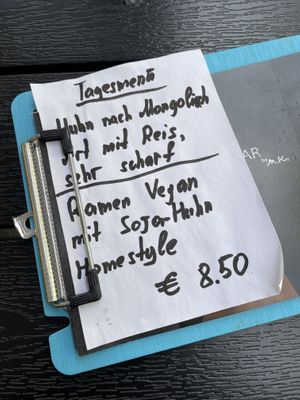 Tagesmenü
Huhn nach Mongolisch
Art mit Reis,
sehr scharf
Ramen Vegan
mit Soja-Huhn
Homestyle
€ 8.50
AR by M.K.